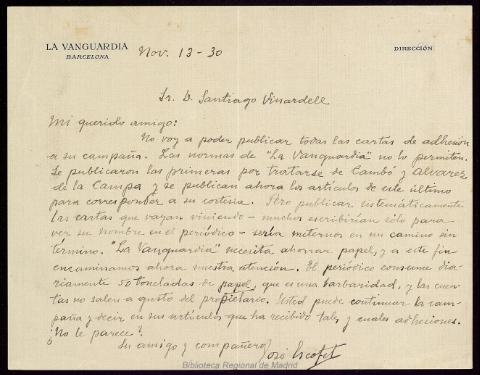 LA VANGUARDIA
BARCELONA
Nov. 13-30
DIRECCIÓN
Sr. D. Santiago Vinardell
Mi querido amigo:
No voy a poder publicar todas las cartas de adhesión
a su campaña. Las normas de "La Vanguardia" no lo permiten.
Se publicaron las primeras por tratarse de Cambó y Alvarez
de la Campa y se publican ahora los artículos de este último
para corresponder a su cortesía. Pero publicar sistemáticamente
las cartas que vayan viniendo - muchos escribirían sólo para
ver su nombre en el periódico - sería meternos en un camino sin
término. "La Vanguardia" necesita ahorrar papel, y a este fin
encaminamos ahora nuestra atención. El periódico consume dia-
riamente 50 toneladas de papel, que es una barbaridad, y las cuen-
tas no salen a gusto del propietario. Usted puede continuar la cam-
paña y decir en sus artículos que ha recibido tales y cuales adhesiones.
¿No le parece?
Su amigo y compañero
José Escofet
Biblioteca Regional de Madrid